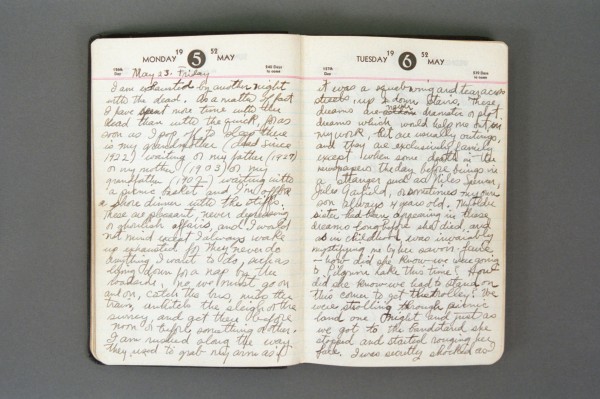 19 52
MONDAY 5 MAY
126th Day
240 Days to come
May 23. Friday
I am exhausted by another night
with the dead. As a matter of fact
I have spent more time with the
dead than with the quick, for as
soon as I pop off to sleep there
is my grandmother (dead since
1922) waiting or my father (1929)
or my mother (1903) or my
grandmother waiting with
a picnic basket and I'm off for
a shore dinner with the stiffs.
These are pleasant, never depressing
or ghoulish affairs, and I would
not mind except I always wake
up exhausted for they never do
anything I want to do, such as
lying down for a nap on the
no, we must go on
and on, catch the bus, miss the
train, unhitch the sleigh or the
surrey, and get there before
noon or before something or other.
I am rushed along the way
they used to grab my arm as if
19 52
TUESDAY 6 MAY
127th Day
239 Days to come
it was a and tear across
streets, up & down stairs. These
dreams are never dramatic or plot
dreams which would help me out in
my work, but are usually outings,
and they are exclusively family
except when some death in the
newspapers the day before brings in
a stranger such as
Jules Garfield, or sometimes my own
son always 4 years old. My older
sister had been appearing in these
dreams long before she died, and
as in childhood was invariably
mystifying me by her savoir-faire
— how did she know we were going
to Pilgrim Lake this time? How
did she know we had to stand on
this corner to get the trolley? We
were strolling through
land one night and just as
we got to the bandstand she
stopped and started rouging her
face. I was secretly shocked and